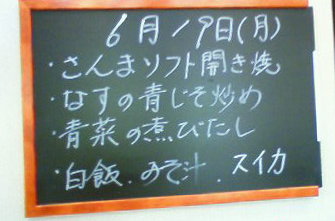 6月19日(月)
・さんまソフト開き焼
・なすの青じそ炒め
・青菜の煮びたし
・白飯.みそ汁.スイカ